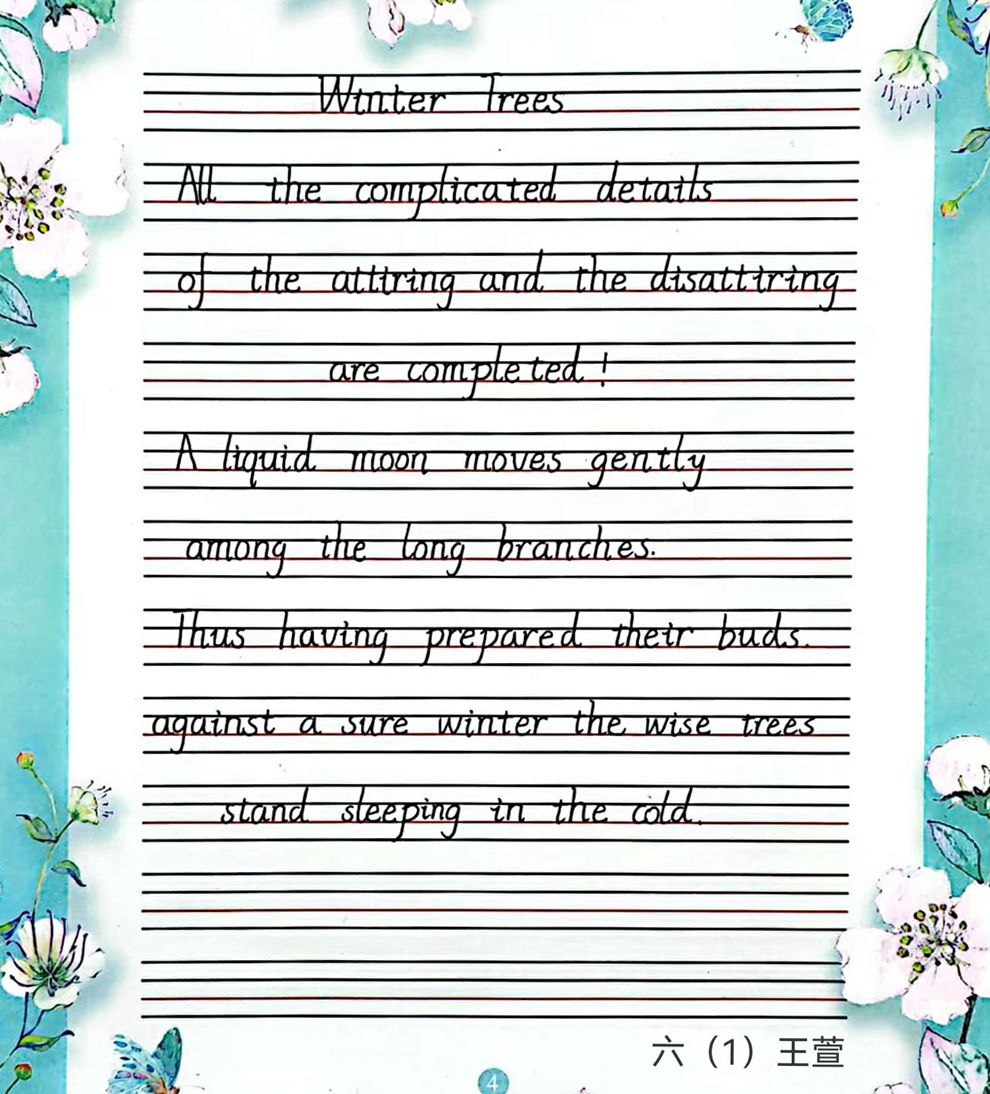 Winter Trees
All the complicated details
of the attiring and the disattiring
are completed!
A liquid moon moves gently
among the long branches.
Thus having prepared their buds.
against a sure winter the wise trees
stand sleeping in the cold.
六（1）王萱
4